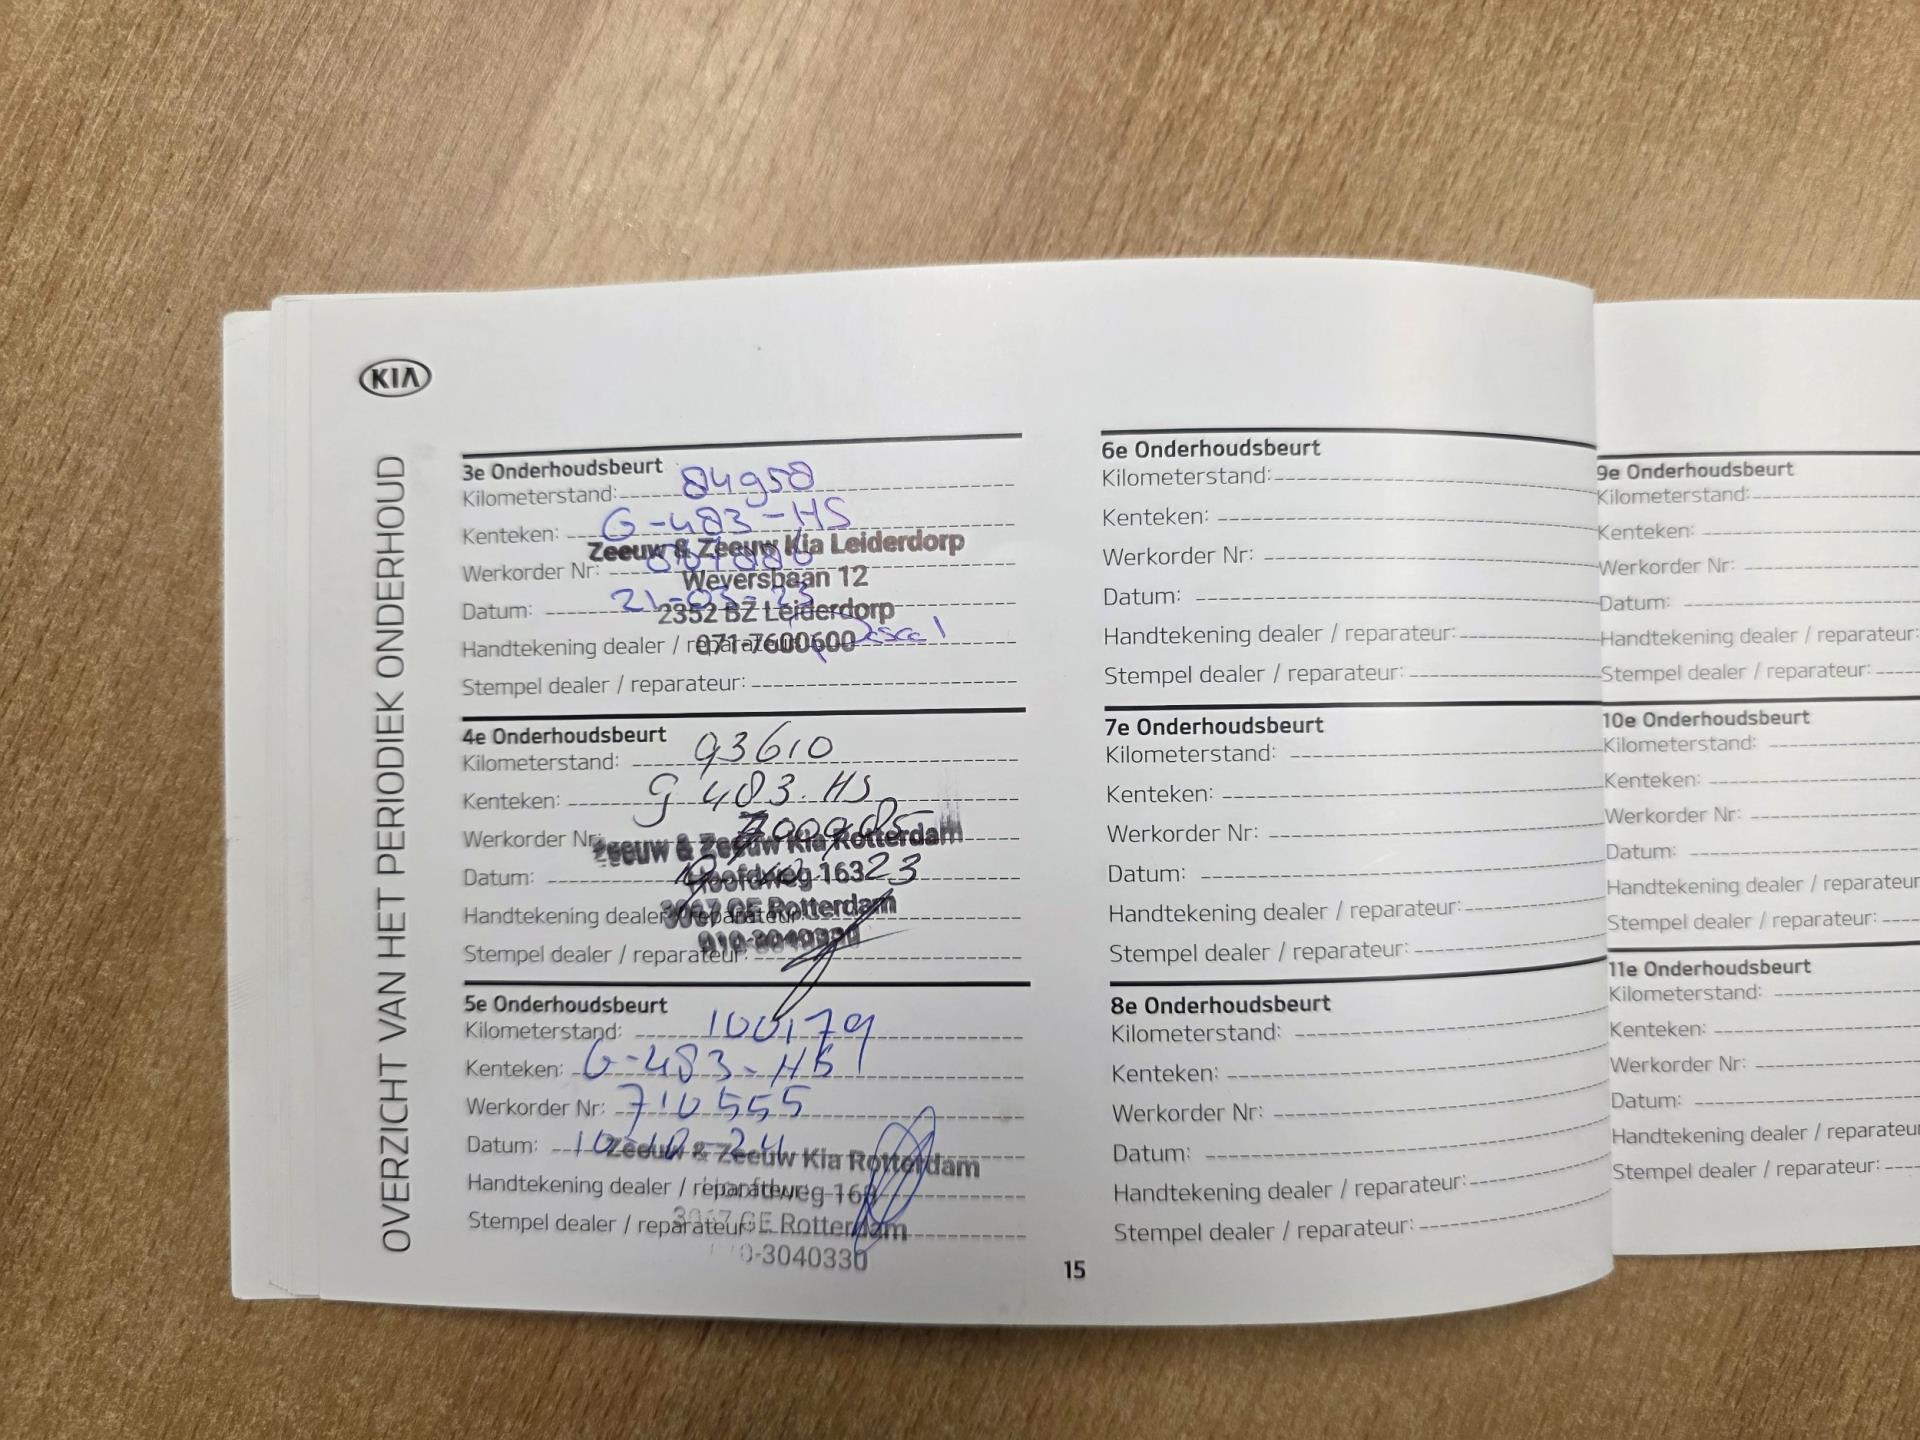 KIA
OVERZICHT VAN HET PERIODIEK ONDERHOUD
3e Onderhoudsbeurt
Kilometerstand: 84958
Kenteken: G-483-HS
Zeeuw & Zeeuw Kia Leiderdorp
Werkorder Nr:
Weversbaan 12
Datum: 21-03-23
2352 BZ Leiderdorp
Handtekening dealer / reparateur:
071-7600600
Stempel dealer / reparateur:
4e Onderhoudsbeurt
Kilometerstand: 93610
Kenteken: G 483.HS
Werkorder Nr:
Zeeuw & Zeeuw Kia Rotterdam
Datum: 23
Hoofdweg 163
Handtekening dealer / reparateur:
3067 GE Rotterdam
010-3040330
Stempel dealer / reparateur:
5e Onderhoudsbeurt
Kilometerstand: 100,179
Kenteken: G-483-HS
Werkorder Nr: 710555
Datum: 10-10-24
Zeeuw & Zeeuw Kia Rotterdam
Handtekening dealer / reparateur:
Hoofdweg 163
Stempel dealer / reparateur:
3067 GE Rotterdam
010-3040330
15
6e Onderhoudsbeurt
Kilometerstand:
Kenteken:
Werkorder Nr:
Datum:
Handtekening dealer / reparateur:
Stempel dealer / reparateur:
7e Onderhoudsbeurt
Kilometerstand:
Kenteken:
Werkorder Nr:
Datum:
Handtekening dealer / reparateur:
Stempel dealer / reparateur:
8e Onderhoudsbeurt
Kilometerstand:
Kenteken:
Werkorder Nr:
Datum:
Handtekening dealer / reparateur:
Stempel dealer / reparateur:
9e Onderhoudsbeurt
Kilometerstand:
Kenteken:
Werkorder Nr:
Datum:
Handtekening dealer / reparateur:
Stempel dealer / reparateur:
10e Onderhoudsbeurt
Kilometerstand:
Kenteken:
Werkorder Nr:
Datum:
Handtekening dealer / reparateur
Stempel dealer / reparateur:
11e Onderhoudsbeurt
Kilometerstand:
Kenteken:
Werkorder Nr:
Datum:
Handtekening dealer / reparateur
Stempel dealer / reparateur: